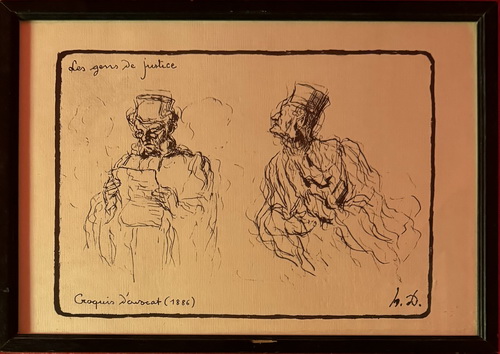 Les gens de justice
Croquis d'avocat (1886)
h. D.